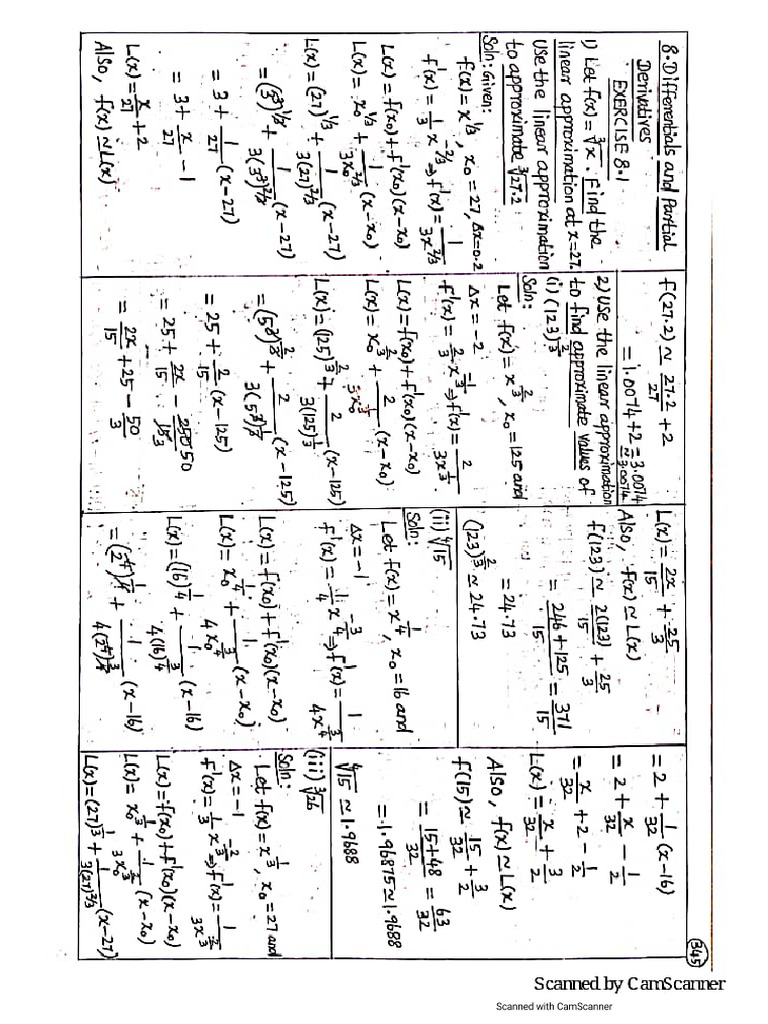 345
8. Differentials and Partial
Derivatives
EXERCISE 8.1
1) Let f(x) = ∛x. Find the
linear approximation at x=27.
Use the linear approximation
to approximate ∛27.2
Soln: Given:
f(x) = x^(1/3), x₀ = 27, Δx = 0.2
f'(x) = 1/3 x^(-2/3) ⇒ f'(x) = 1/(3x^(2/3))
L(x) = f(x₀) + f'(x₀)(x-x₀)
L(x) = x₀^(1/3) + 1/(3x₀^(2/3)) (x-x₀)
L(x) = (27)^(1/3) + 1/(3(27)^(2/3)) (x-27)
= (3³)^(1/3) + 1/(3(3³)^(2/3)) (x-27)
= 3 + 1/27 (x-27)
= 3 + x/27 - 1
L(x) = x/27 + 2
Also, f(x) ≃ L(x)
f(27.2) ≃ 27.2/27 + 2
= 1.0074 + 2 = 3.0074
≃ 3.0074
2) Use the linear approximation
to find approximate values of
(i) (123)^(2/3)
Soln:
Let f(x) = x^(2/3), x₀ = 125 and
Δx = -2
f'(x) = 2/3 x^(-1/3) ⇒ f'(x) = 2/(3x^(1/3))
L(x) = f(x₀) + f'(x₀)(x-x₀)
L(x) = x₀^(2/3) + 2/(3x₀^(1/3)) (x-x₀)
L(x) = (125)^(2/3) + 2/(3(125)^(1/3)) (x-125)
= (5³)^(2/3) + 2/(3(5³)^(1/3)) (x-125)
= 25 + 2/15 (x-125)
= 25 + 2x/15 - 250/15 50/3
= 2x/15 + 25 - 50/3
L(x) = 2x/15 + 25/3
Also, f(x) ≃ L(x)
f(123) ≃ 2(123)/15 + 25/3
= (246+125)/15 = 371/15
= 24.73
(123)^(2/3) ≃ 24.73
(ii) ∜15
Soln:
Let f(x) = x^(1/4), x₀ = 16 and
Δx = -1
f'(x) = 1/4 x^(-3/4) ⇒ f'(x) = 1/(4x^(3/4))
L(x) = f(x₀) + f'(x₀)(x-x₀)
L(x) = x₀^(1/4) + 1/(4x₀^(3/4)) (x-x₀)
L(x) = (16)^(1/4) + 1/(4(16)^(3/4)) (x-16)
= (2⁴)^(1/4) + 1/(4(2⁴)^(3/4)) (x-16)
= 2 + 1/32 (x-16)
= 2 + x/32 - 1/2
= x/32 + 2 - 1/2
L(x) = x/32 + 3/2
Also, f(x) ≃ L(x)
f(15) ≃ 15/32 + 3/2
= (15+48)/32 = 63/32
= 1.96875 ≃ 1.9688
∜15 ≃ 1.9688
(iii) ∛26
Soln:
Let f(x) = x^(1/3), x₀ = 27 and
Δx = -1
f'(x) = 1/3 x^(-2/3) ⇒ f'(x) = 1/(3x^(2/3))
L(x) = f(x₀) + f'(x₀)(x-x₀)
L(x) = x₀^(1/3) + 1/(3x₀^(2/3)) (x-x₀)
L(x) = (27)^(1/3) + 1/(3(27)^(2/3)) (x-27)
Scanned by CamScanner
Scanned with CamScanner